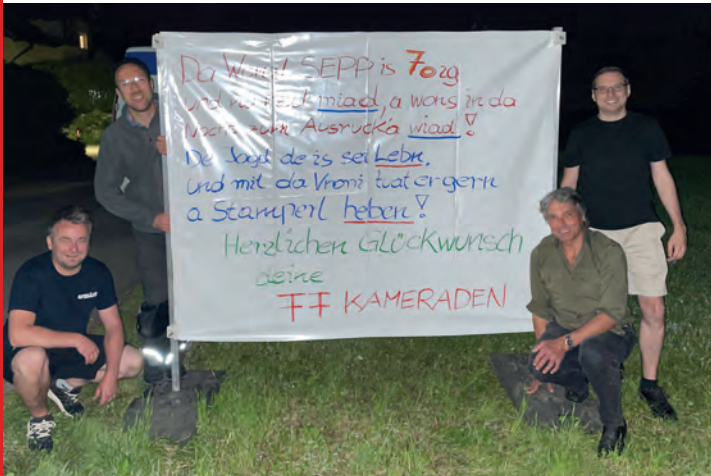 Da SEPP is 70zg
und miad, a wons in da
Nocht zum Ausrucka wiad!
De Jogd de is sei Lebn,
und mit da Vroni tuat er gern
a Stamperl heben!
Herzlichen Glückwunsch
deine
FF KAMERADEN